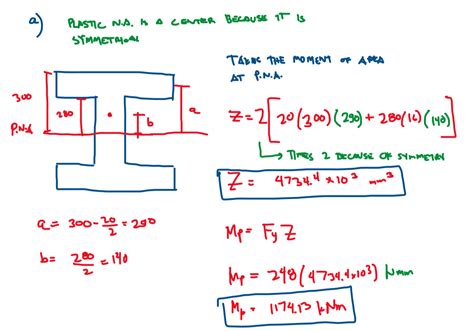 a) PLASTIC N.A. IS @ CENTER BECAUSE IT IS
SYMMETRICAL
TAKING THE MOMENT OF AREA
AT P.N.A.
300
280
P.N.A
b
a
Z = 2 [ 20 (300) (290) + 280 (16) (140) ]
→ TIMES 2 BECAUSE OF SYMMETRY
Z = 4734.4 x 10³ mm³
a = 300 - 20/2 = 290
b = 280/2 = 140
Mp = Fy Z
Mp = 248 (4734.4x10³) Nmm
Mp = 1174.13 kNm